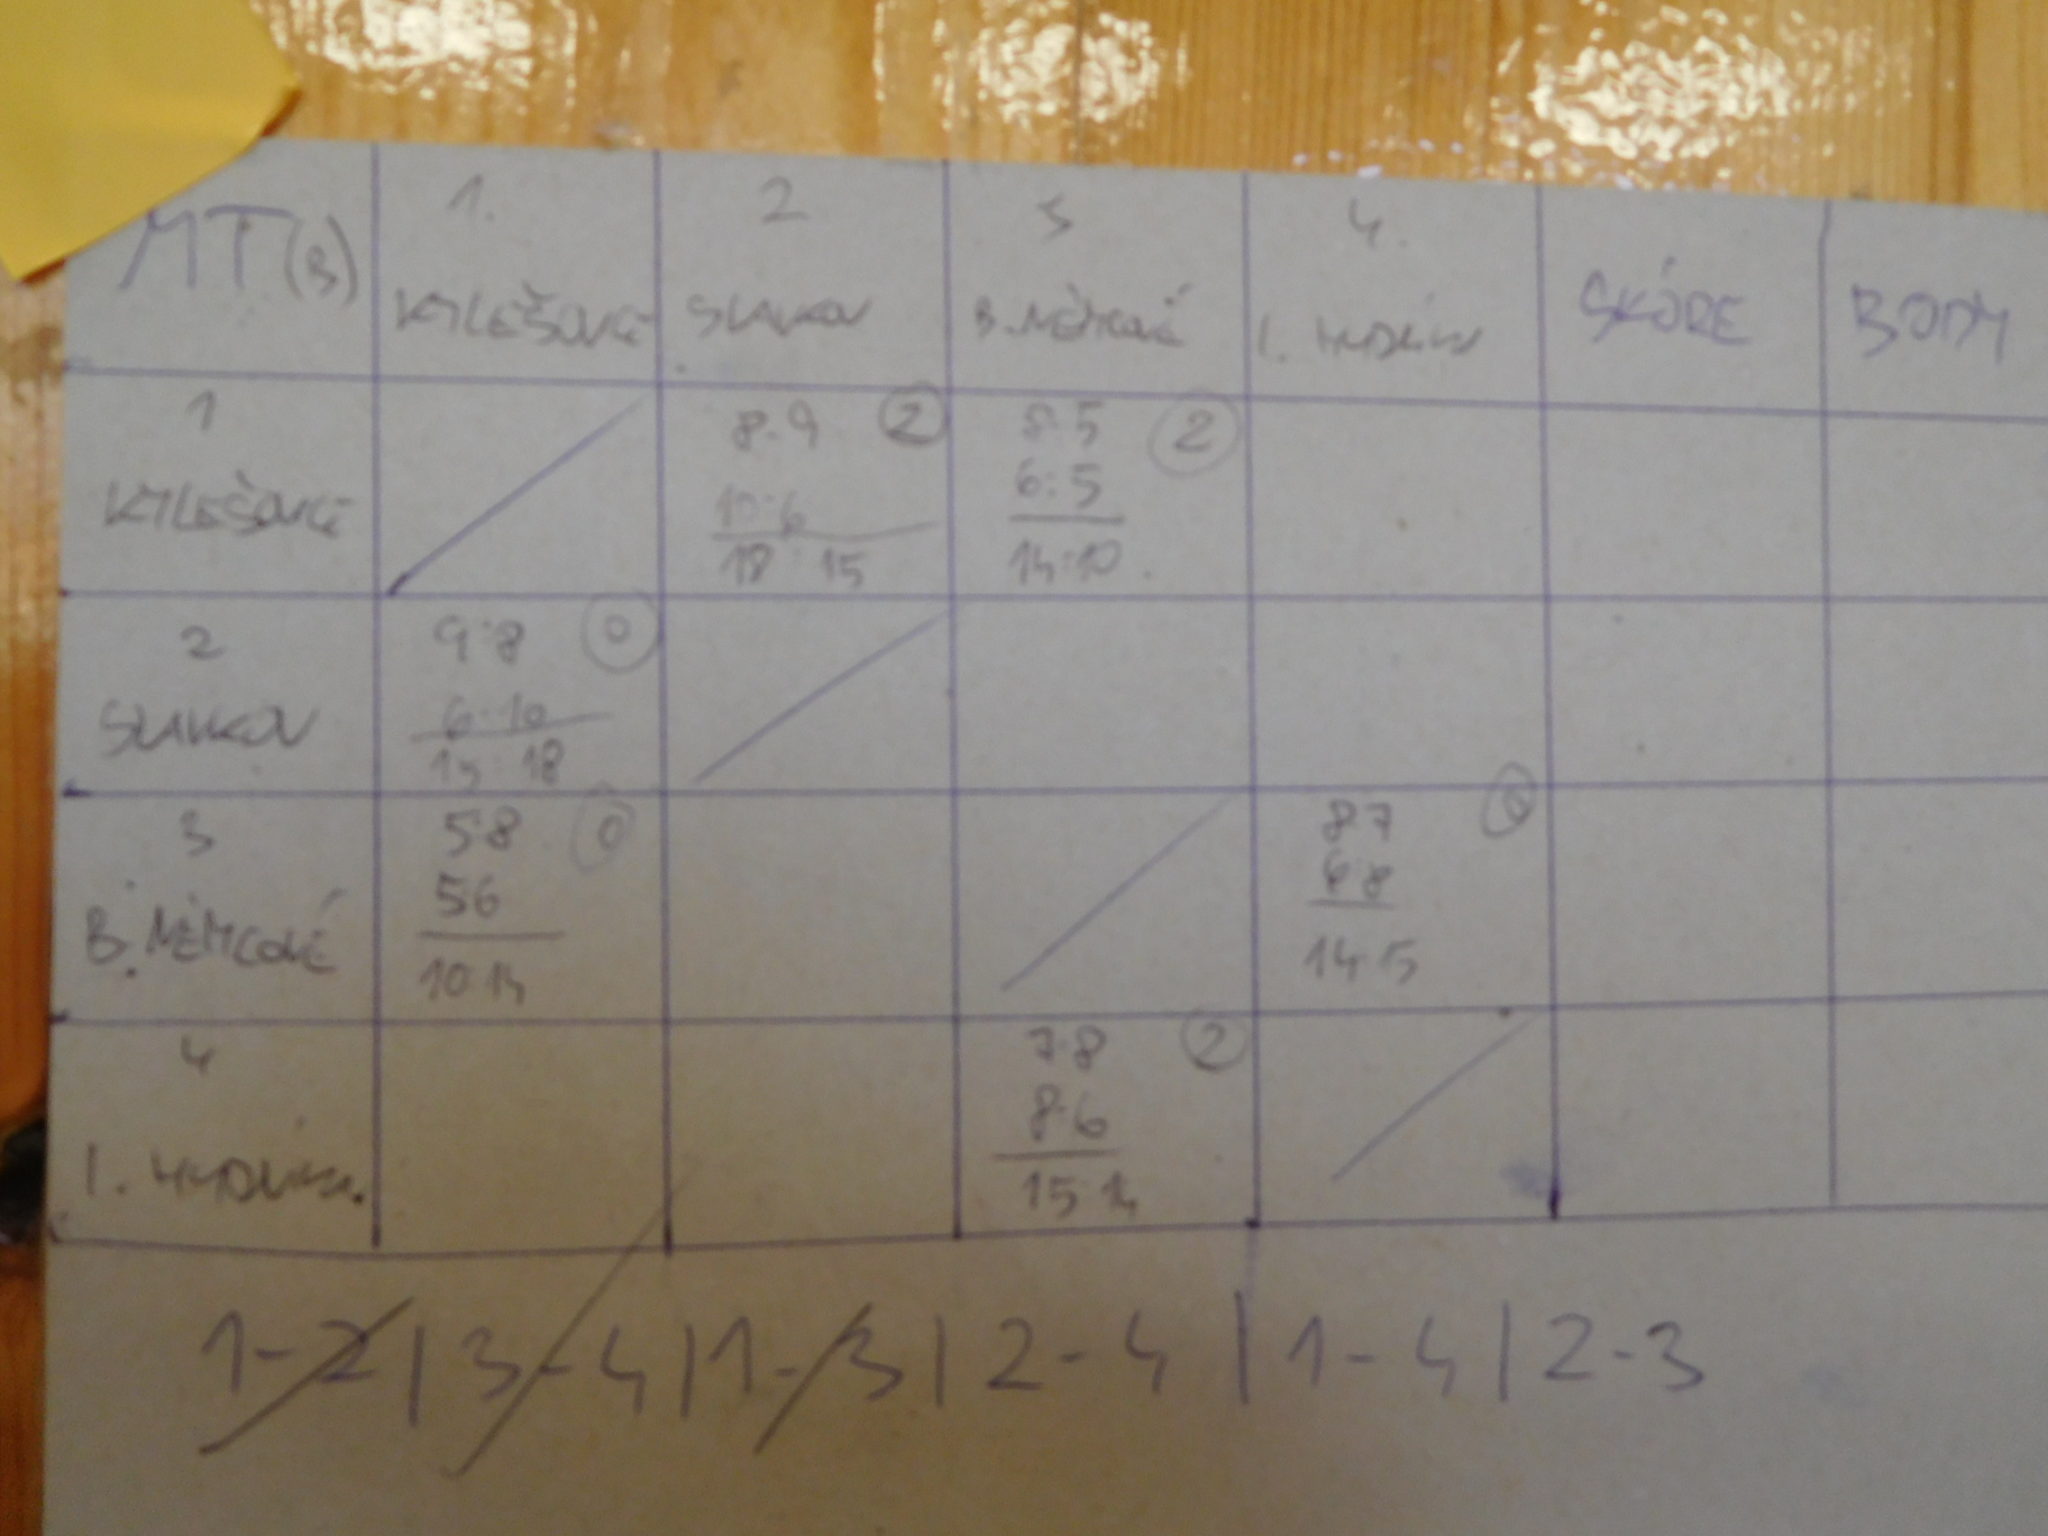 MT(B) 1. 2 3 4.
KYLEŠOVICE SLAVKOV B. NĚMCOVÉ I. HUDLICE SKÓRE BODY
1 8:9 2 8:5 2
6:5
KYLEŠOVICE 10:6 14:10
18:15
2 9:8 0
SLAVKOV 6:10
15:18
3 5:8 0 8:7 0
5:6 6:8
B. NĚMCOVÉ 10:14 14:15
4 7:8 2
8:6
I. 15:14
1-2 | 3-4 | 1-3 | 2-4 | 1-4 | 2-3